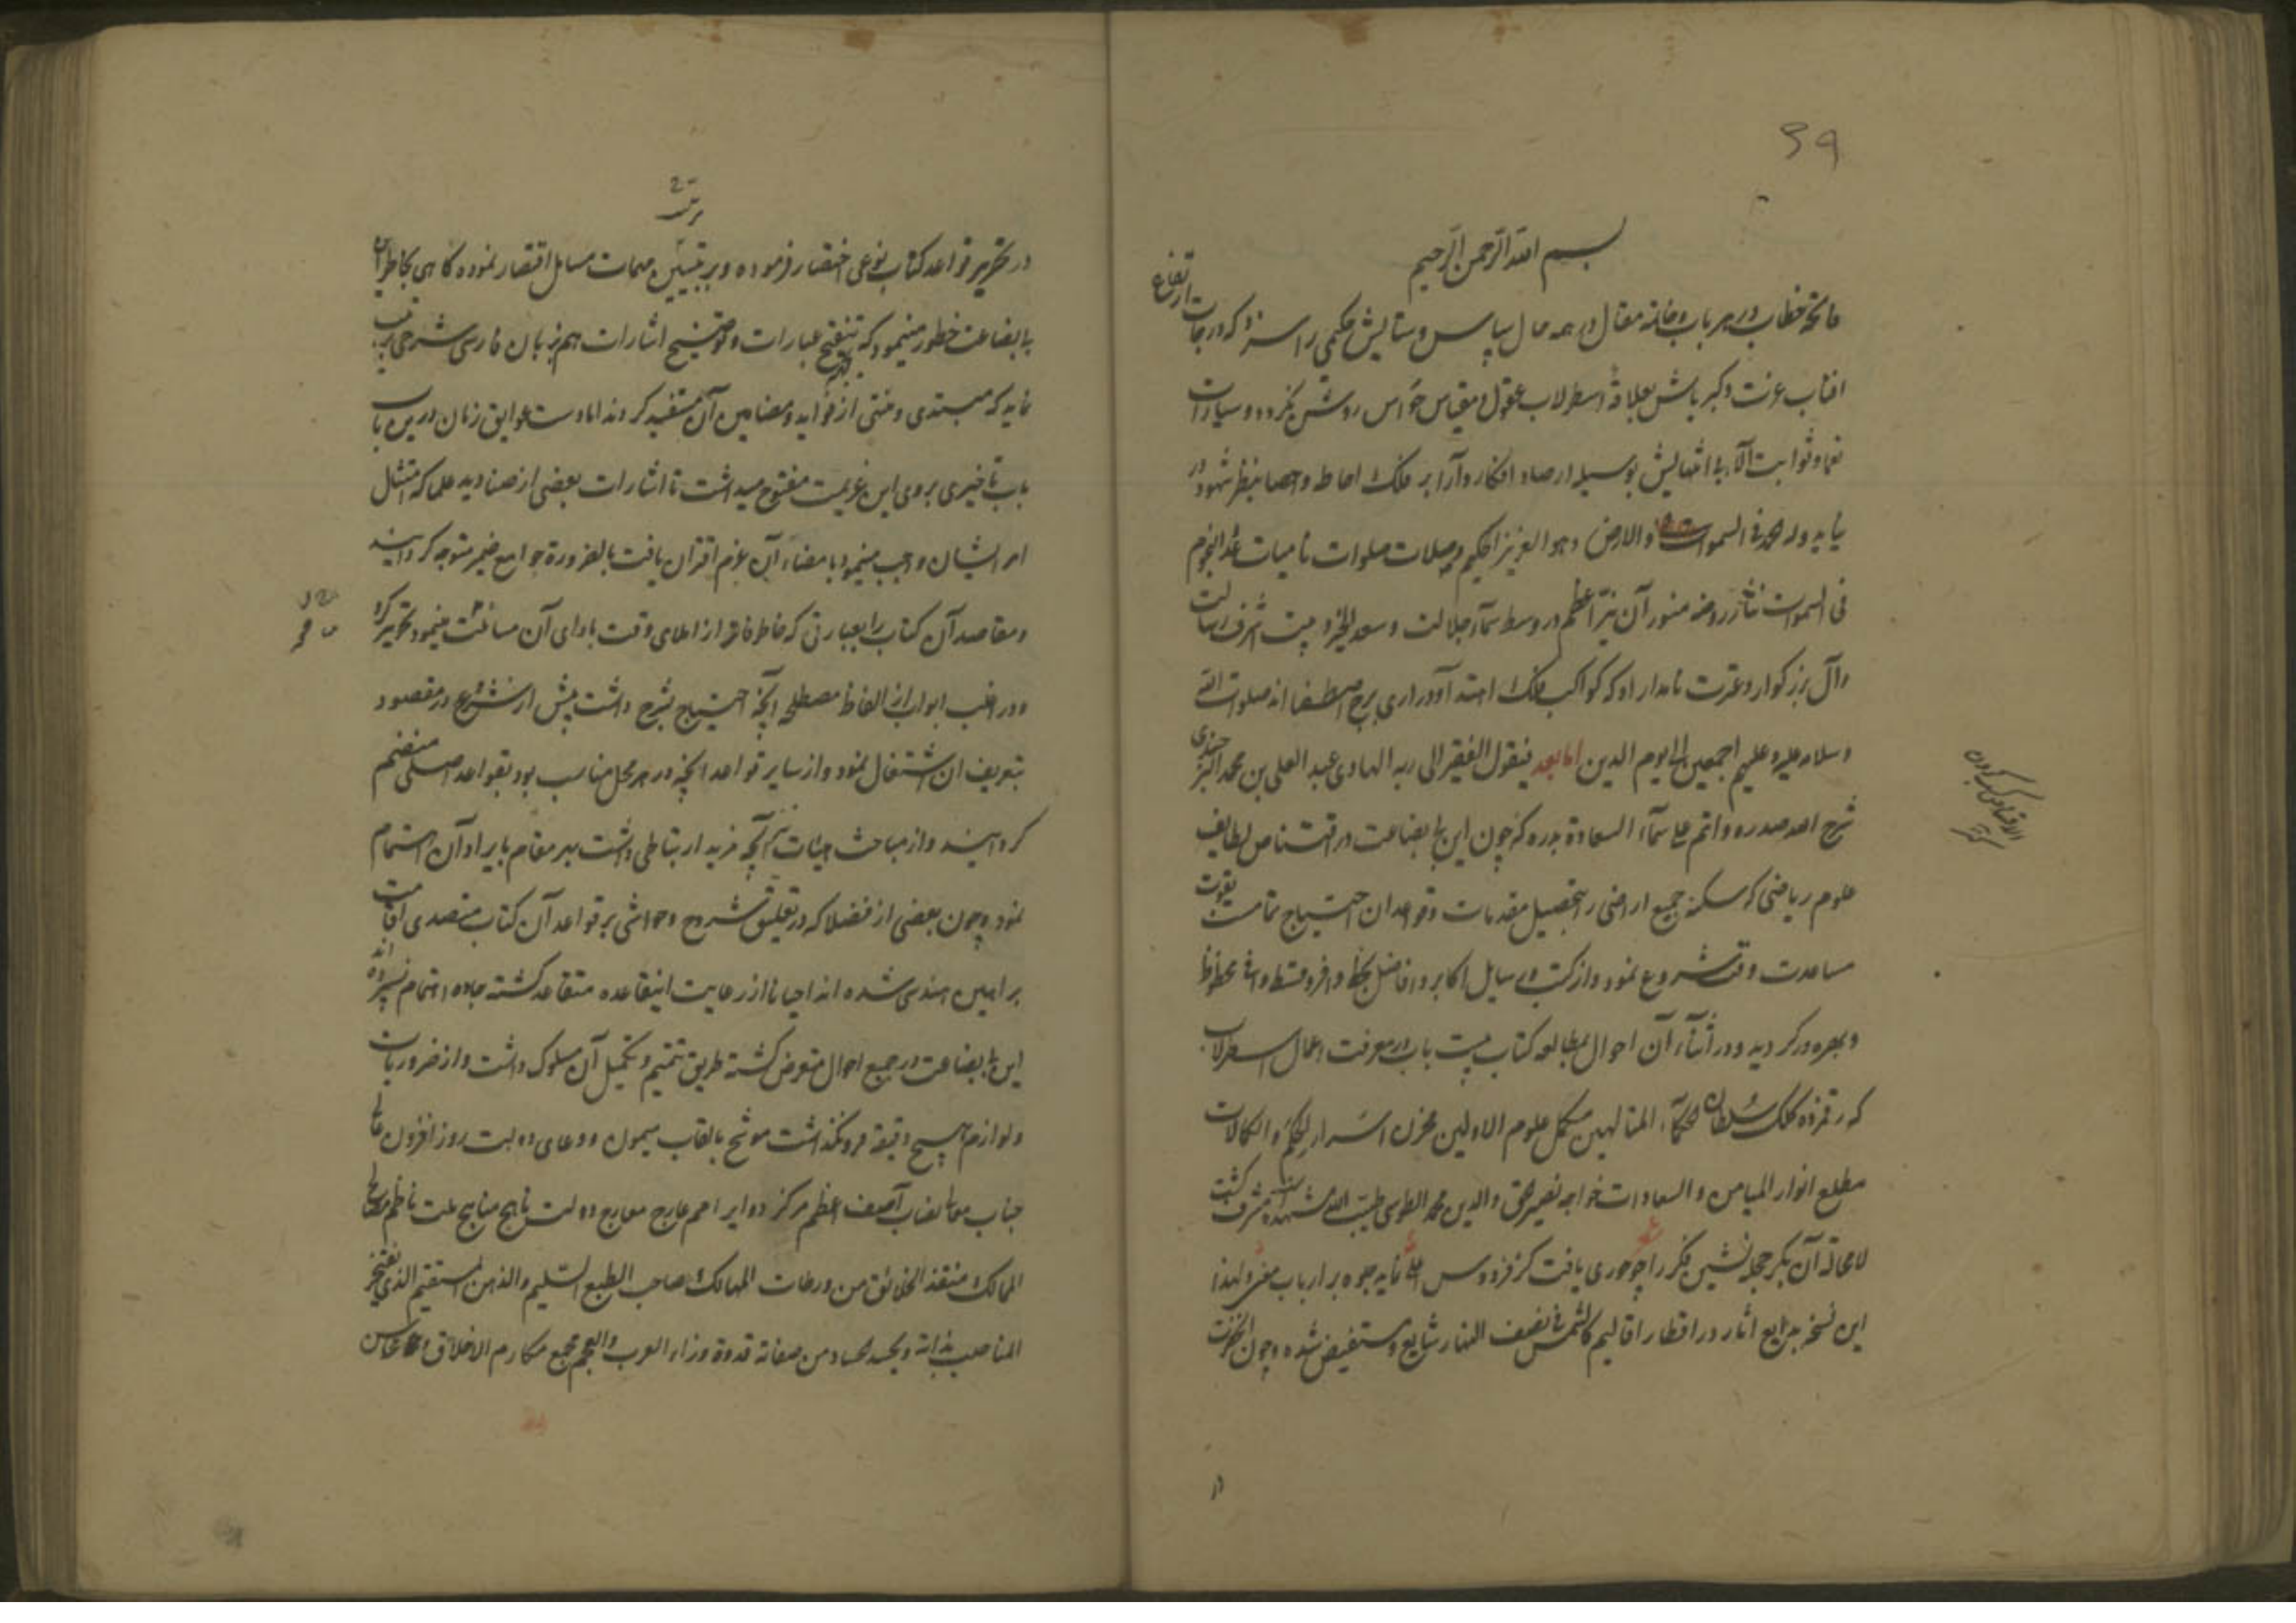 39
بسم الله الرحمن الرحیم
فاتحهٔ خطاب در هر باب و خاتمهٔ مقال در همه حال سپاس و ستایش حکیمی را سزد که درجات ارتفاع
افتاب عزت و کبریاش بعلاقهٔ اسطرلاب عقول و مقیاس حواس روشن نکردد و سیارات
نعما و ثوابت آلا بی انتهایش بوسیله ارصاد افکار و آرا بر فلک احاطه و احصا بنظر شهود در
نیاید وله الحمد فی السموات و الارض و هو العزیز الحکیم و صلات صلوات نامیات عدد النجوم
فی السموات نثار روضه منور آن نیر اعظم در وسط سمآء جلالت و سعد اکبر و بیت شرف رسالت
و آل بزرکوار و عترت نامدار او که کواکب فلک اهتدا و دراری برج اصطفا اند صلوات الله
و سلامه علیه و علیهم اجمعین الی یوم الدین اما بعد فیقول الفقیر الی ربه الهادی عبد العلی بن محمد البرجندی
شرح الله صدره و اتم علی سمآء السعادة بدره که چون این بی بضاعت در اقتناص لطایف
علوم ریاضی که سکنه جمیع اراضی را بتحصیل مقدمات و قواعد ان احتیاج تمامست بقوت
مساعدت وقت شروع نمود و از کتب و رسایل اکابر و افاضل بحظ وافر و قسط وافی محظوظ
و بهره ور کردید و در اثناء آن احوال بمطالعه کتاب بیست باب در معرفت اعمال اسطرلاب
که رقم زده کلک سلطان الحکمآء المتالهین مکمل علوم الاولین مخزن اسرار الحکم و الکمالات
مطلع انوار المیامن و السعادات خواجه نصیر الحق و الدین محمد الطوسی طیب الله مشهده مشرف کشت
لا محاله آن بکر حجله نشین فکر را چو حوری یافت کز فردوس اعلی نماید جلوه بر ارباب معنی و لهذا
این نسخه بدایع اثار در اقطار اقالیم کالشمس فی نصف النهار شایع و مستفیض شده و چون انحضرت
در
در تحریر قواعد کتاب بنوعی اختصار فرموده و بر تبیین مهمات مسایل اقتصار نموده کاهی بخاطر این
بی بضاعت خطور مینمود که بجهت تنقیح عبارات و توضیح اشارات هم بزبان فارسی شرحی ترتیب
نماید که مبتدی و منتهی از فواید و مضامین آن مستفید کردند اما دست عوایق زمان درین باب
باب تاخیری بروی این عزیمت مفتوح میداشت تا اشارات بعضی از صنادید علما که امتثال
امر ایشان واجب مینمود با مضاء آن عزم اقتران یافت بالضرورة جوامع ضمیر متوجه کردانید
و مقاصد آن کتاب را بعبارتی که خاطر فاتر از املای وقت بادای آن مسامحت مینمود تحریر کرد
و در اغلب ابواب از الفاظ مصطلحه آنچه احتیاج بشرح داشت پیش از شروع در مقصود
بتعریف ان اشتغال نمود و از سایر قواعد انچه در هر محل مناسب بود بقواعد اصلی منضم
کردانید و از مباحث هیئات نیز آنچه مزید ارتباطی داشت بهر مقام بایراد آن اهتمام
نمود و چون بعضی از فضلا که در تعلیق شروح و حواشی بر قواعد آن کتاب متصدی اقامت
براهین هندسی شده اند احیانا از رعایت اینقاعده متقاعد کشته جاده اهتمام نسپرده اند
این بی بضاعت در جمیع احوال متعرض کشته طریق تتمیم و تکمیل آن مسلوک داشت و از ضروریات
و لوازم هیچ دقیقه فرو نکذاشت موشح بالقاب میمون و دعای دولت روز افزون عالی
جناب معالی نصاب آصف اعظم مرکز دوایر امم عارج معارج دولت ناهج مناهج ملت ناظم مصالح
الممالک منقذ الخلائق من ورطات المهالک صاحب الطبع السلیم و الذهن المستقیم الذی یفتخر
المناصب بذاته و یحسد الحساد من صفاته قدوة وزراء العرب و العجم مجمع مکارم الاخلاق و محاسن